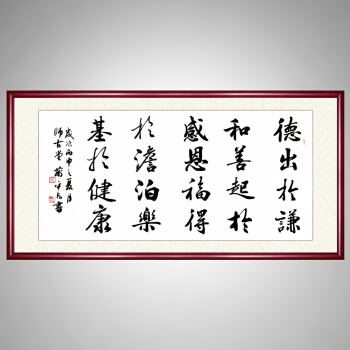 德出於謙
和善起於
感恩福得
於澹泊樂
基於健康
歲次丙申之夏
師古堂 書